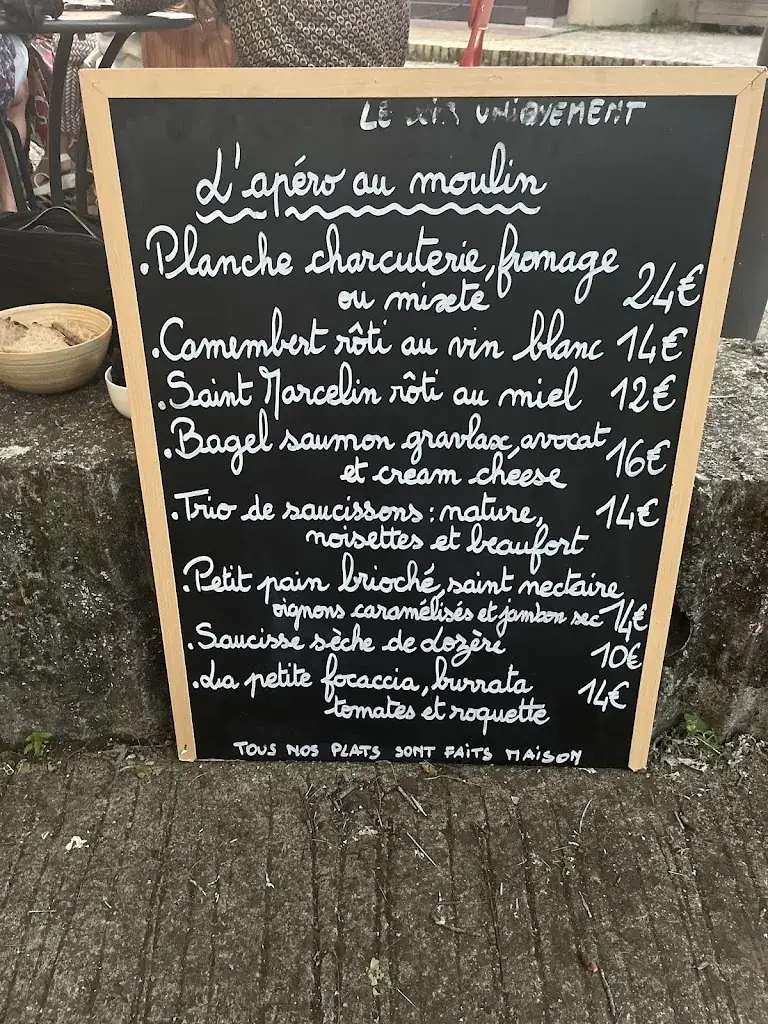 LE UNIQUEMENT
L'apéro au moulin
.Planche charcuterie, fromage
ou mixte 24€
.Camembert rôti au vin blanc 14€
.Saint Marcelin rôti au miel 12€
.Bagel saumon gravlax, avocat
et cream cheese 16€
.Trio de saucissons: nature, 14€
noisettes et beaufort
.Petit pain brioché, saint nectaire
oignons caramélisés et jambon sec 14€
.Saucisse sèche de Lozère 10€
.La petite focaccia, burrata 14€
tomates et roquette
TOUS NOS PLATS SONT FAITS MAISON